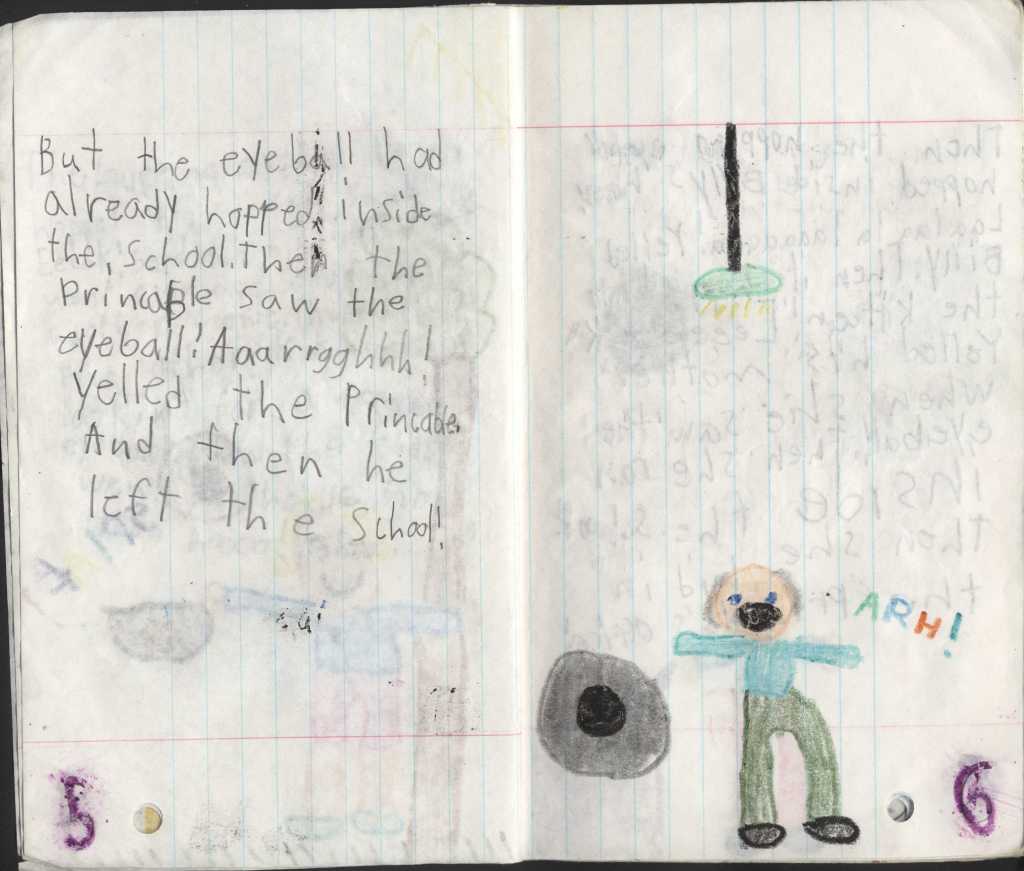 But the eyeball had
already hopped inside
the, school. Then the
Princable saw the
eyeball! Aaarrgghhh!
Yelled the Princable.
And then he
left the school!
5
ARH!
6